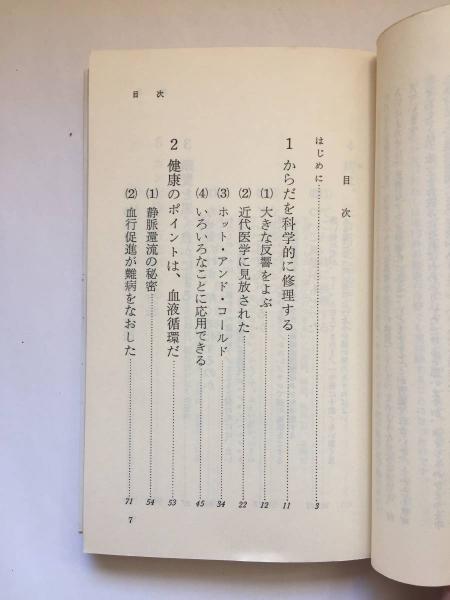 目　次
目　次
はじめに……………………3
1 からだを科学的に修理する……………………11
(1) 大きな反響をよぶ……………………12
(2) 近代医学に見放された……………………22
(3) ホット・アンド・コールド……………………34
(4) いろいろなことに応用できる……………………45
2 健康のポイントは、血液循環だ……………………53
(1) 静脈還流の秘密……………………54
(2) 血行促進が難病をなおした……………………71
7